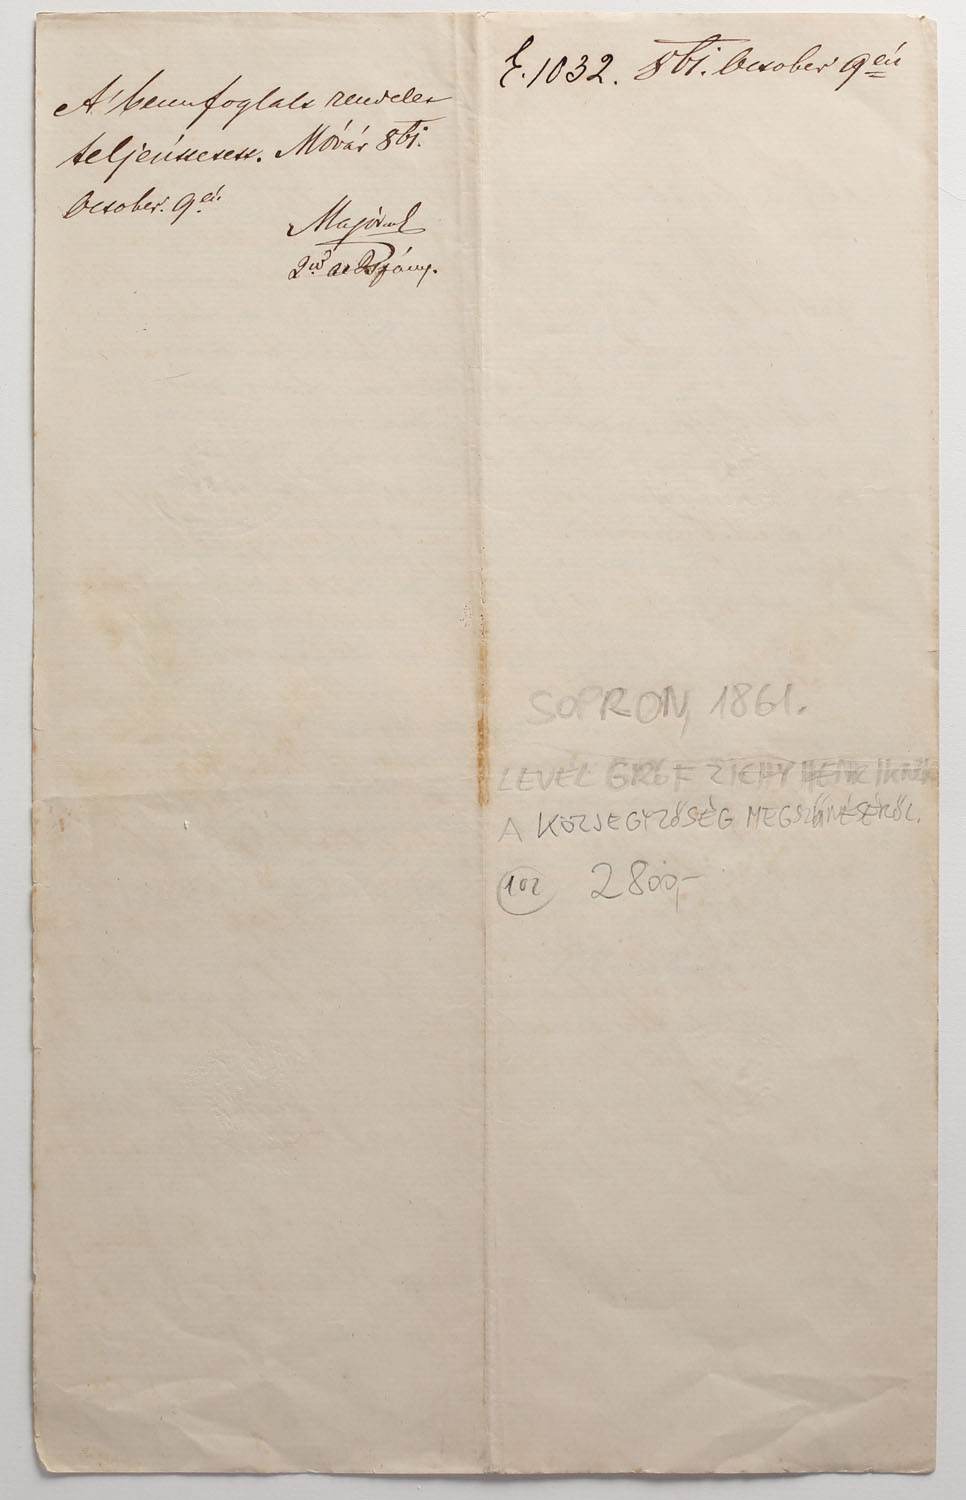 A' bennfoglalt rendelet
teljesíttetett. Móvár 861.
October. 9én
E. 1032. 861. October 9én
SOPRON, 1861.
LEVÉL GRÓF ZICHY HENRIKNEK
A KÖZJEGYZŐSÉG MEGSZŰNÉSÉRŐL.
102 2800,-